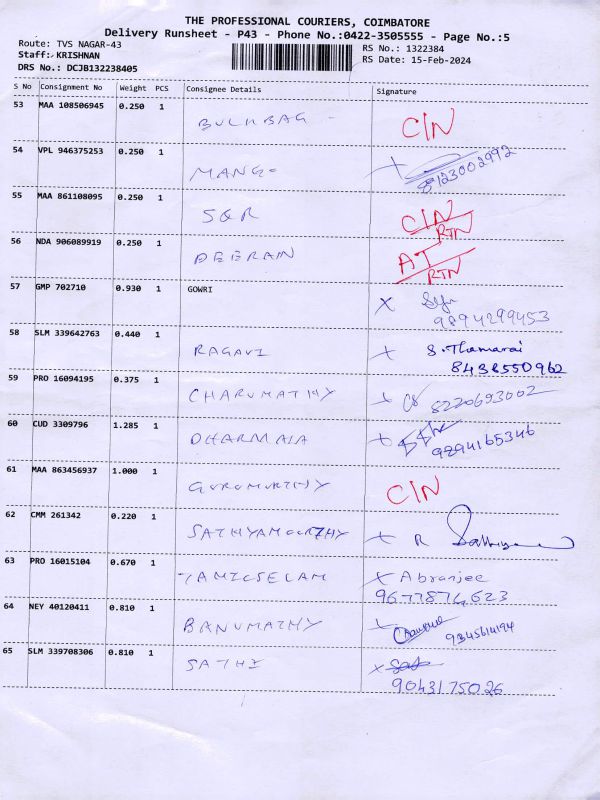 THE PROFESSIONAL COURIERS, COIMBATORE
Delivery Runsheet - P43 - Phone No.:0422-3505555 - Page No.:5
Route: TVS NAGAR-43 RS No.: 1322384
Staff: KRISHNAN RS Date: 15-Feb-2024
DRS No.: DCJB132238405
S No Consignment No Weight PCS Consignee Details Signature
53 MAA 108506945 0.250 1
BULKBAG - CIN
54 VPL 946375253 0.250 1
MANGO X 8123002992
55 MAA 861108095 0.250 1
SQR CIN
RTN
56 NDA 906089919 0.250 1
DEERAN AT
RTN
57 GMP 702710 0.930 1 GOWRI
X
9894299453
58 SLM 339642763 0.440 1
RAGAVI X S.Thamarai
8438550962
59 PRO 16094195 0.375 1
CHARUMATHY X 8220693002
60 CUD 3309796 1.285 1
DHARMAIA X 9894165346
61 MAA 863456937 1.000 1
GURUMURTHY CIN
62 CMM 261342 0.220 1
SATHYAMOORTHY X R
63 PRO 16015104 0.670 1
TAMILSELAM X Abranjee
9677874623
64 NEY 40120411 0.810 1
BANUMATHY X 9345614194
65 SLM 339708306 0.810 1
SATHI X
9043175026